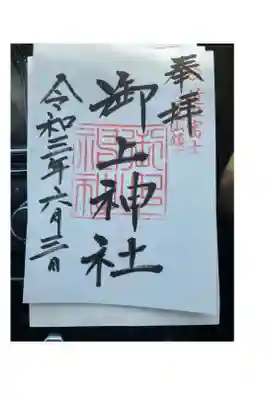 奉拝
富士
御上神社
令和三年六月三日